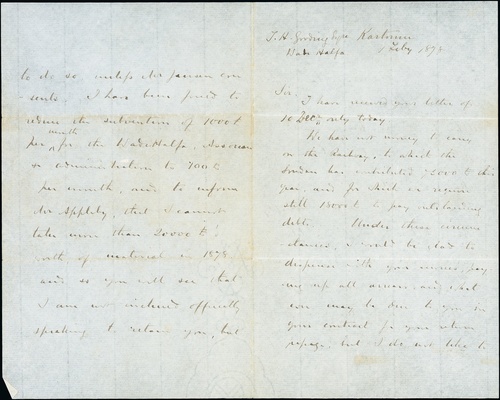 T. H. Gooding Esqre Kartoum
Wadi Halfa 1 Feby 1878
Sir.
I have received your letter of
10 Decr only today
We have not money to carry
on the Railway, to which the
Soudan has contributed 75000 £ this
year, and for which we require
still 13000 £ to pay outstanding
debts. Under these circum
stances, I would be glad to
dispense with your services, pay
ing up all arrears, and what
ever may be due to you in
your contract for your return
passage, but I do not like to
to do so, unless Mr Janson con
sents. I have been forced to
reduce the subvention of 1000 £
per month for the Wadi Halfa,
administration to 700 £
per month, and to inform
Mr Appleby, that I cannot
take more than 20000 £
worth of material in 1878
and so you will see that
I am not inclined officially
speaking to retain you, but